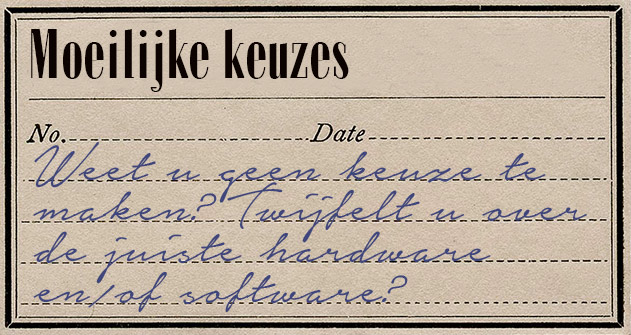 Moeilijke keuzes
No. Date
Weet u geen keuze te
maken? Twijfelt u over
de juiste hardware
en/of software?